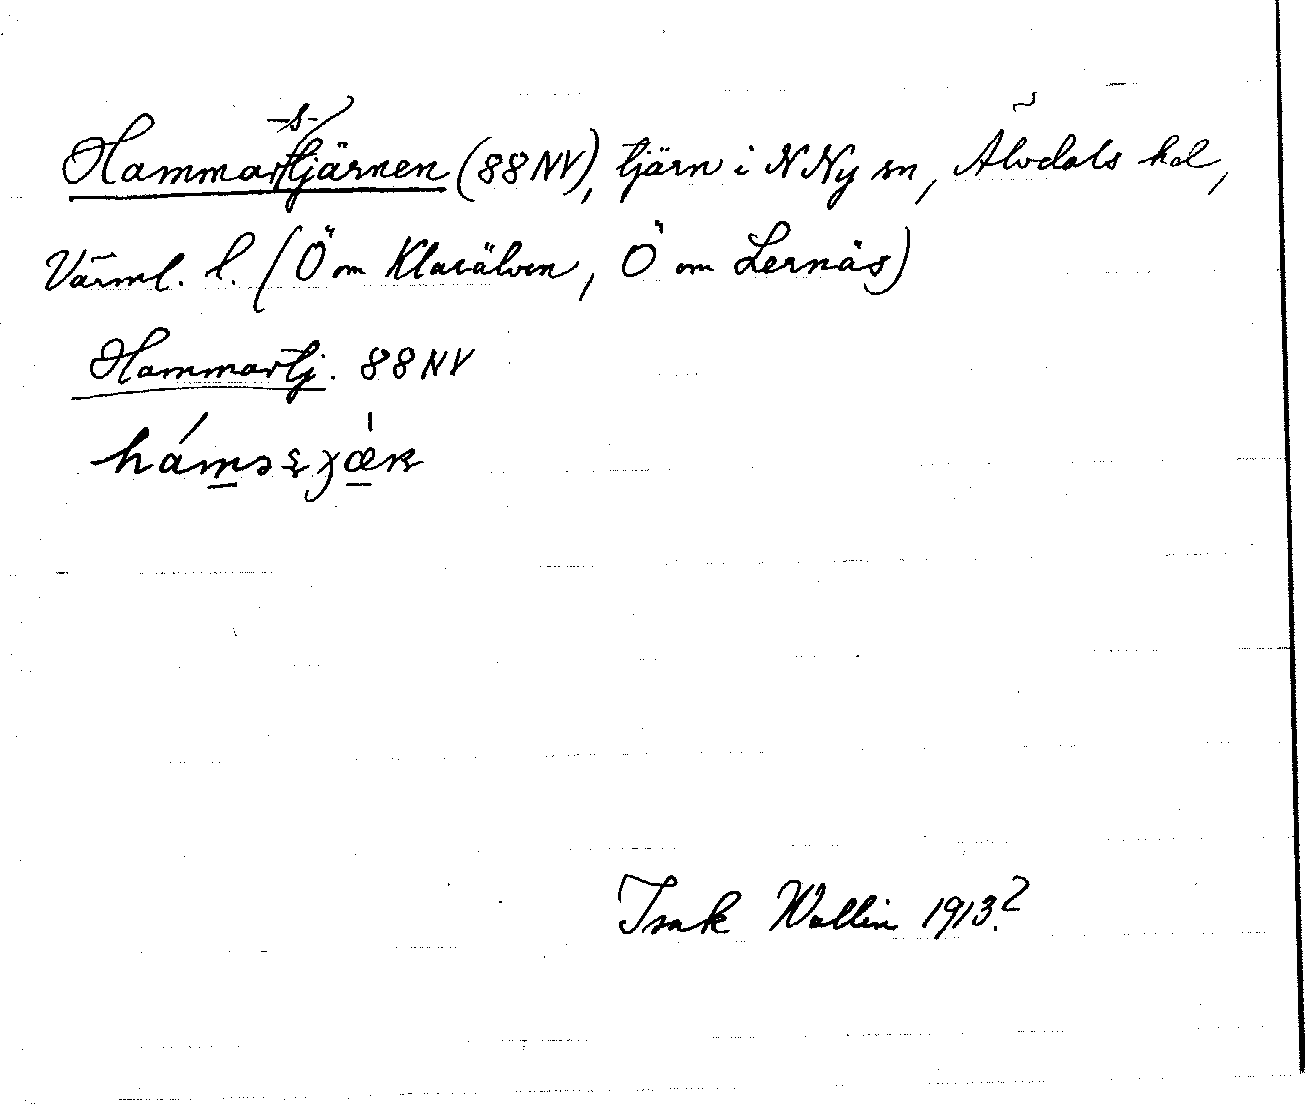 Hammar-s-tjärnen (88 NV), tjärn i N Ny sn, Älvdals hd,
Värml. l. (Ö om Klarälven, Ö om Lernäs)
Hammartj. 88 NV
Isak Wallin 1913?